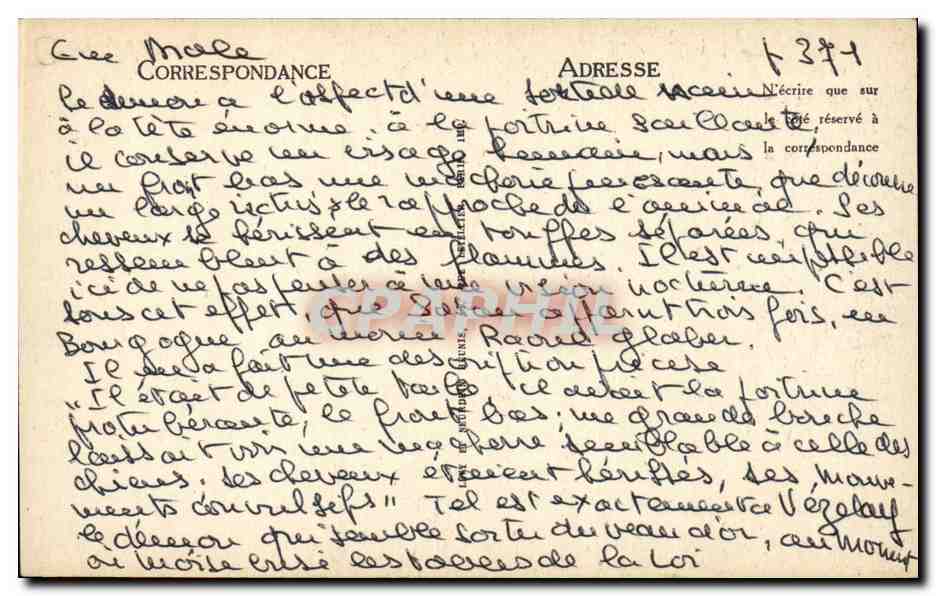 Male p 371
CORRESPONDANCE ADRESSE
Le démon a l'aspect d'une sorte de nain N'écrire que sur
à la tête énorme, à la poitrine saillante, le côté réservé à
il conserve un visage humain, mais la correspondance
un front bas une mâchoire puissante, que découvre
un large rictus le rapproche de l'animal. Ses
cheveux se hérissent en touffes séparées, qui
ressemblent à des flammes. Il est impossible
ici de ne pas penser à une vision nocturne. C'est
sous cet effet, que Satan apparut trois fois, en
Bourgogne au moine Raoul Glaber.
Il en a fait une description précise
"Il était de petite taille il avait la poitrine
protubérante, le front bas; une grande bouche
laissait voir une mâchoire semblable à celle des
chiens. Ses cheveux étaient hérissés, ses mouve-
ments convulsifs" Tel est exactement à Vézelay
le démon qui semble sortir du veau d'or, au moment
où Moïse brise les tables de la Loi
CPARAMA